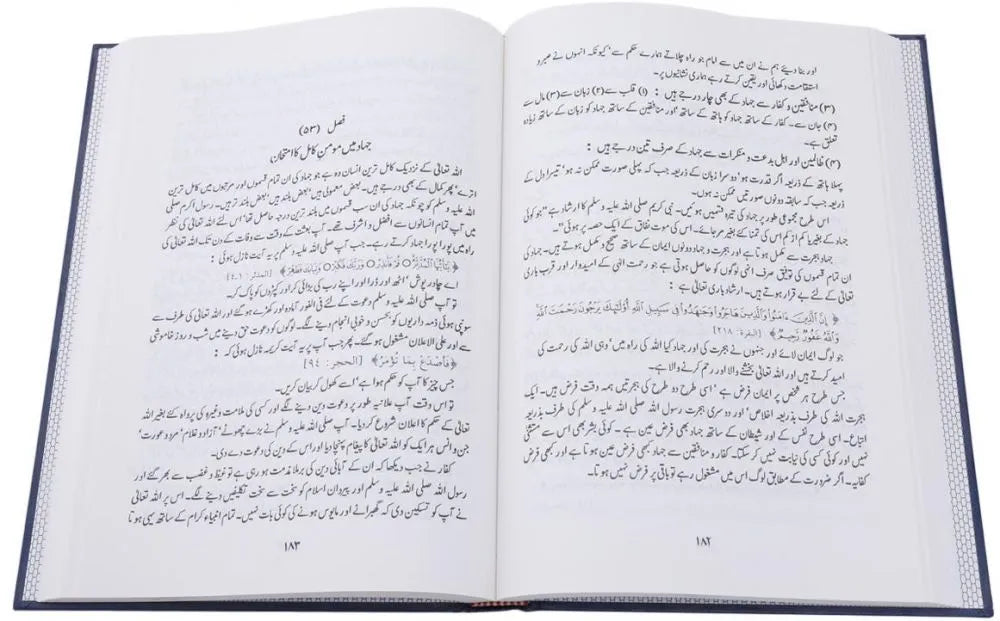 اور بنا دیئے ہم نے ان میں سے امام جو راہ چلاتے ہمارے حکم سے‘ کیونکہ انہوں نے صبر و
استقامت دکھائی اور یقین کرتے رہے ہماری نشانیوں پر۔
(۳) منافقین و کفار سے جہاد کے بھی چار درجے ہیں : (۱) قلب سے (۲) زبان سے (۳) مال سے
(۴) جان سے۔ کفار کے ساتھ جہاد کو ہاتھ کے ساتھ‘ اور منافقین کے ساتھ جہاد کو زبان کے ساتھ زیادہ
تعلق ہے۔
(۴) ظالمین اور اہل بدعت و منکرات سے جہاد کے صرف تین درجے ہیں :
پہلا ہاتھ کے ذریعہ اگر قدرت ہو‘ دوسرا زبان کے ذریعہ جب کہ پہلی صورت ممکن نہ ہو‘ تیسرا دل کے
ذریعہ جب کہ سابقہ دونوں صورتیں ممکن نہ ہوں۔
اس طرح مجموعی طور پر جہاد کی تیرہ قسمیں ہوئیں۔ نبی کریم صلی اللہ علیہ وسلم کا ارشاد ہے ”جو کوئی
جہاد کے بغیر یا کم از کم اس کی تمنا کئے بغیر مر جائے۔ اس کی موت نفاق کے ایک حصہ پر ہوئی“۔
جہاد ہجرت سے مکمل ہوتا ہے اور ہجرت و جہاد دونوں ایمان کے ساتھ صحیح و مکمل ہوتے ہیں۔ جہاد کی
ان تمام قسموں کی توفیق صرف انہی لوگوں کو حاصل ہوتی ہے جو رحمت الٰہی کے امیدوار اور قرب باری
تعالیٰ کے لئے بے قرار ہوتے ہیں۔ ارشاد باری تعالیٰ ہے :
﴿إِنَّ الَّذِينَ ءَامَنُوا وَالَّذِينَ هَاجَرُوا وَجَـٰهَدُوا فِى سَبِيلِ اللَّهِ أُو۟لَـٰٓئِكَ يَرْجُونَ رَحْمَتَ اللَّهِ
وَاللَّهُ غَفُورٌ رَّحِيمٌ﴾ [البقرة: ۲۱۸]
جو لوگ ایمان لائے اور جنہوں نے ہجرت کی اور جہاد کیا اللہ کی راہ میں‘ وہی اللہ کی رحمت کی
امید کرتے ہیں اور اللہ تعالیٰ بخشنے والا اور رحم کرنے والا ہے۔
جس طرح ہر شخص پر ایمان فرض ہے‘ اسی طرح دو طرح کی ہجرتیں ہمہ وقت فرض ہیں۔ ایک
ہجرت اللہ کی طرف بذریعہ اخلاص‘ اور دوسری ہجرت رسول اللہ صلی اللہ علیہ وسلم کی طرف بذریعہ
اتباع۔ اسی طرح نفس کے اور شیطان کے ساتھ جہاد بھی فرض عین ہے۔ کوئی بشر بھی اس سے مستثنیٰ
نہیں اور کوئی کسی کی نیابت نہیں کر سکتا۔ کفار و منافقین سے جہاد کبھی فرض عین ہوتا ہے اور کبھی فرض
کفایہ۔ اگر ضرورت کے مطابق لوگ اس میں مشغول رہے تو باقی پر فرض نہیں ہوتا۔
۱۸۲
فصل (۵۳)
جہاد میں مومن کامل کا امتحان
اللہ تعالیٰ کے نزدیک کامل ترین انسان وہ ہے جو جہاد کی ان تمام قسموں اور مرتبوں میں کامل ترین
اترے‘ پھر کمال کے بھی درجے ہیں۔ بعض معمولی ہیں‘ بعض بلند ہیں‘ بعض بلند تر ہیں۔ رسول اکرم صلی
اللہ علیہ وسلم کو چونکہ جہاد کی ان سب قسموں میں بلند ترین درجہ حاصل تھا‘ اس لئے اللہ تعالیٰ کی نظر
میں آپ تمام انسانوں سے افضل و اشرف تھے۔ آپ بعثت کے وقت سے وفات کے دن تک اللہ تعالیٰ کی
راہ میں پورا پورا جہاد کرتے رہے۔ جب آپ صلی اللہ علیہ وسلم پر یہ آیت نازل ہوئی :
﴿يَـٰٓأَيُّهَا الْمُدَّثِّرُ ۝ قُمْ فَأَنذِرْ ۝ وَرَبَّكَ فَكَبِّرْ ۝ وَثِيَابَكَ فَطَهِّرْ﴾ [المدثر: ۱۔۴]
اے چادر پوش‘ اٹھ اور ڈرا اور اپنے رب کی بڑائی کر اور کپڑوں کو پاک کر۔
تو آپ صلی اللہ علیہ وسلم دعوت کے لئے فی الفور آمادہ اور کھڑے ہو گئے اور اللہ تعالیٰ کی طرف سے
سونپی ہوئی ذمہ داریوں کو بحسن و خوبی انجام دینے لگے۔ لوگوں کو دعوت حق دینے میں شب و روز خاموشی
سے اور علی الاعلان مشغول ہو گئے۔ پھر جب آپ پر یہ آیت کریمہ نازل ہوئی کہ :
﴿فَٱصْدَعْ بِمَا تُؤْمَرُ﴾ [الحجر: ۹٤]
جس چیز کا آپ کو حکم ہوا ہے‘ اسے کھول کر بیان کریں۔
تو اس وقت آپ علانیہ طور پر دعوت دین دینے لگے اور کسی کی ملامت وغیرہ کی پرواہ کئے بغیر اللہ
تعالیٰ کے حکم کا اعلان شروع کر دیا۔ آپ صلی اللہ علیہ وسلم نے بڑے چھوٹے‘ آزاد و غلام‘ مرد و عورت‘
جن و انس ہر ایک کو اللہ تعالیٰ کا پیغام پہنچا دیا اور اس کے دین کی دعوت دے دی۔
کفار نے جب دیکھا کہ ان کے آبائی دین کی برملا مذمت ہو رہی ہے تو غیظ و غضب سے بھر گئے اور
رسول اللہ صلی اللہ علیہ وسلم اور پیروان اسلام کو سخت سے سخت تکلیفیں دینے لگے۔ اس پر اللہ تعالیٰ
نے آپ کو تسکین دی کہ گھبرانے اور مایوس ہونے کی کوئی بات نہیں۔ تمام انبیاء کرام کے ساتھ یہی ہوتا
۱۸۳